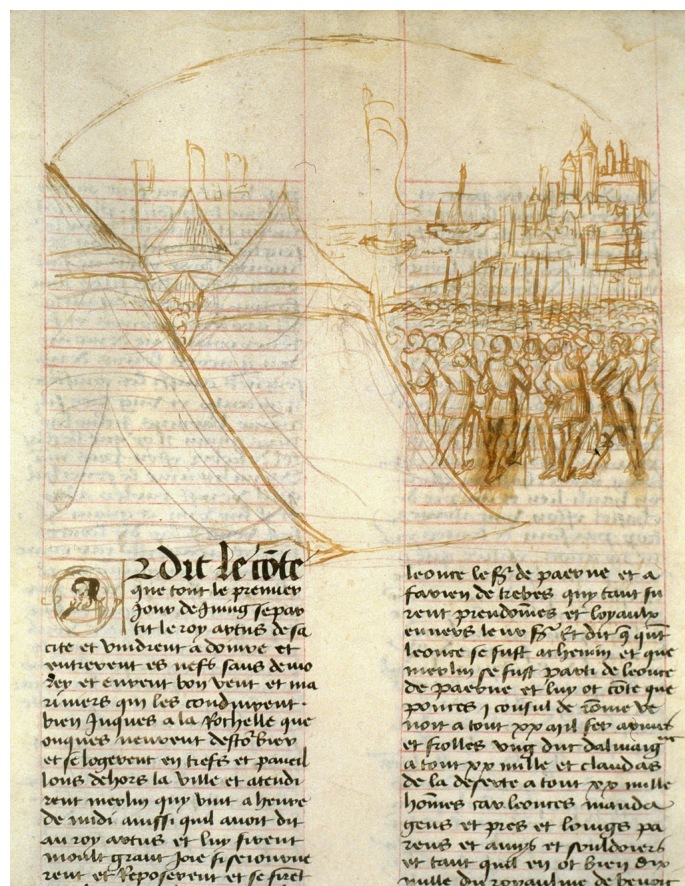 Or dit le cōte
que tout le premier
Jour de Juing se par
tit le roy artus de sa
cite et vindrent a douvre et
entrerent es nefs sans demo
rer et eurent bon vent et ma
riniers qui les conduirent
bien Jusques a la Rochelle que
onques neurent destorbier
et se logerent en trefs et paueil
lons dehors la ville et atendi
rent merlin quy vint a heure
de midi aussi quil auoit dit
au roy artus et luy firent
moult grant Joie si seiourne
rent et Reposerent et se firet
leonce le sr de paerne et a
farien de trebes quy tant fu
rent preudomes et loyaulx
enuers leur sr Et dit q̄ qūt
leonce se fust a chemin et que
merlin se fust parti de leonce
de paerne et luy ot cōte que
ponces j consul de rōme ve
noit a tout xx mil fer armes
et frolles vng duc dalmaigne
a tout xx mille et claudas
de la deserte a tout xx mille
hōmes car leonces manda
gens et pres et loings pa
rens et amys et souldoiers
et tant quil en ot bien dix
mille du royaulme de benoit